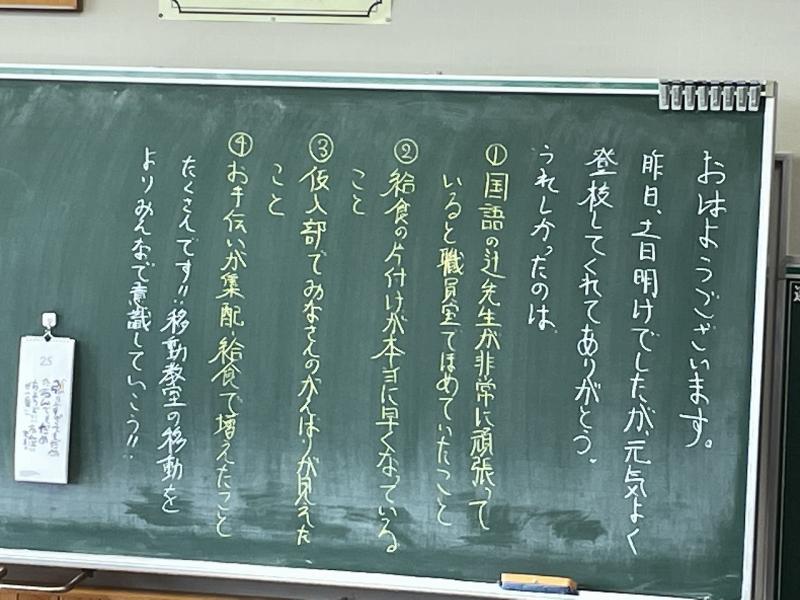 おはようございます。
昨日、土日明けでしたが、元気よく
登校してくれてありがとう。
うれしかったのは、
①国語の辻先生が非常に頑張って
いると職員室でほめていたこと
②給食の片付けが本当に早くなっている
こと
③仮入部でみなさんのがんばりが見えた
こと
④お手伝いが集配、給食で増えたこと
たくさんです!!移動教室の移動を
よりみんなで意識していこう!!
25